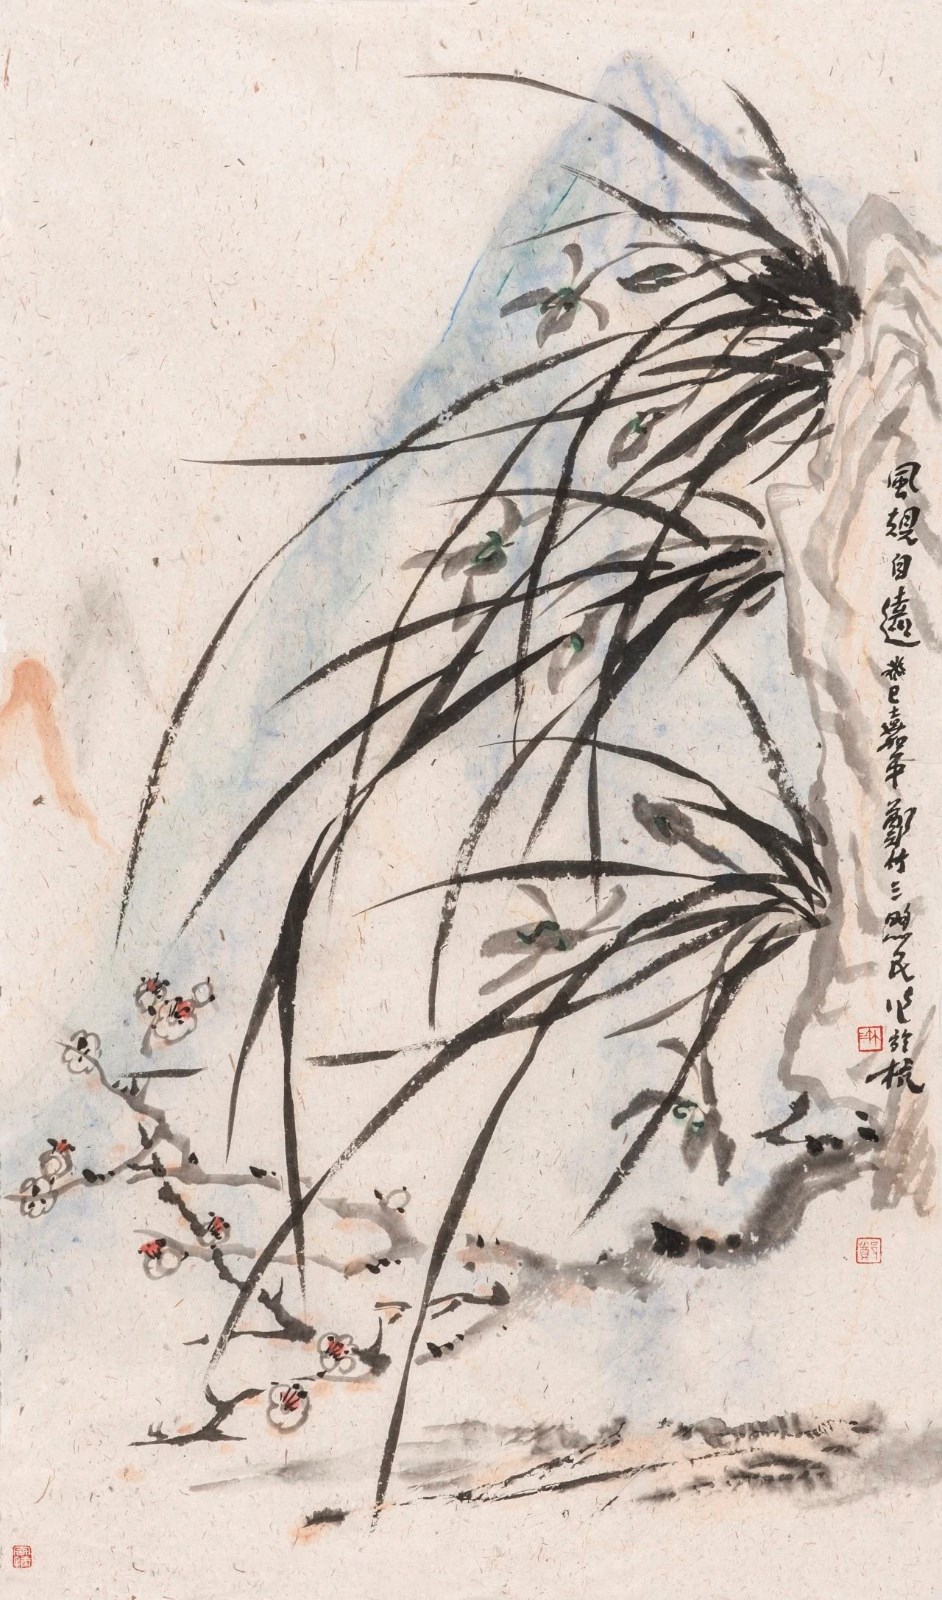 風規自遠 癸巳嘉平鄭竹三 民作於杭